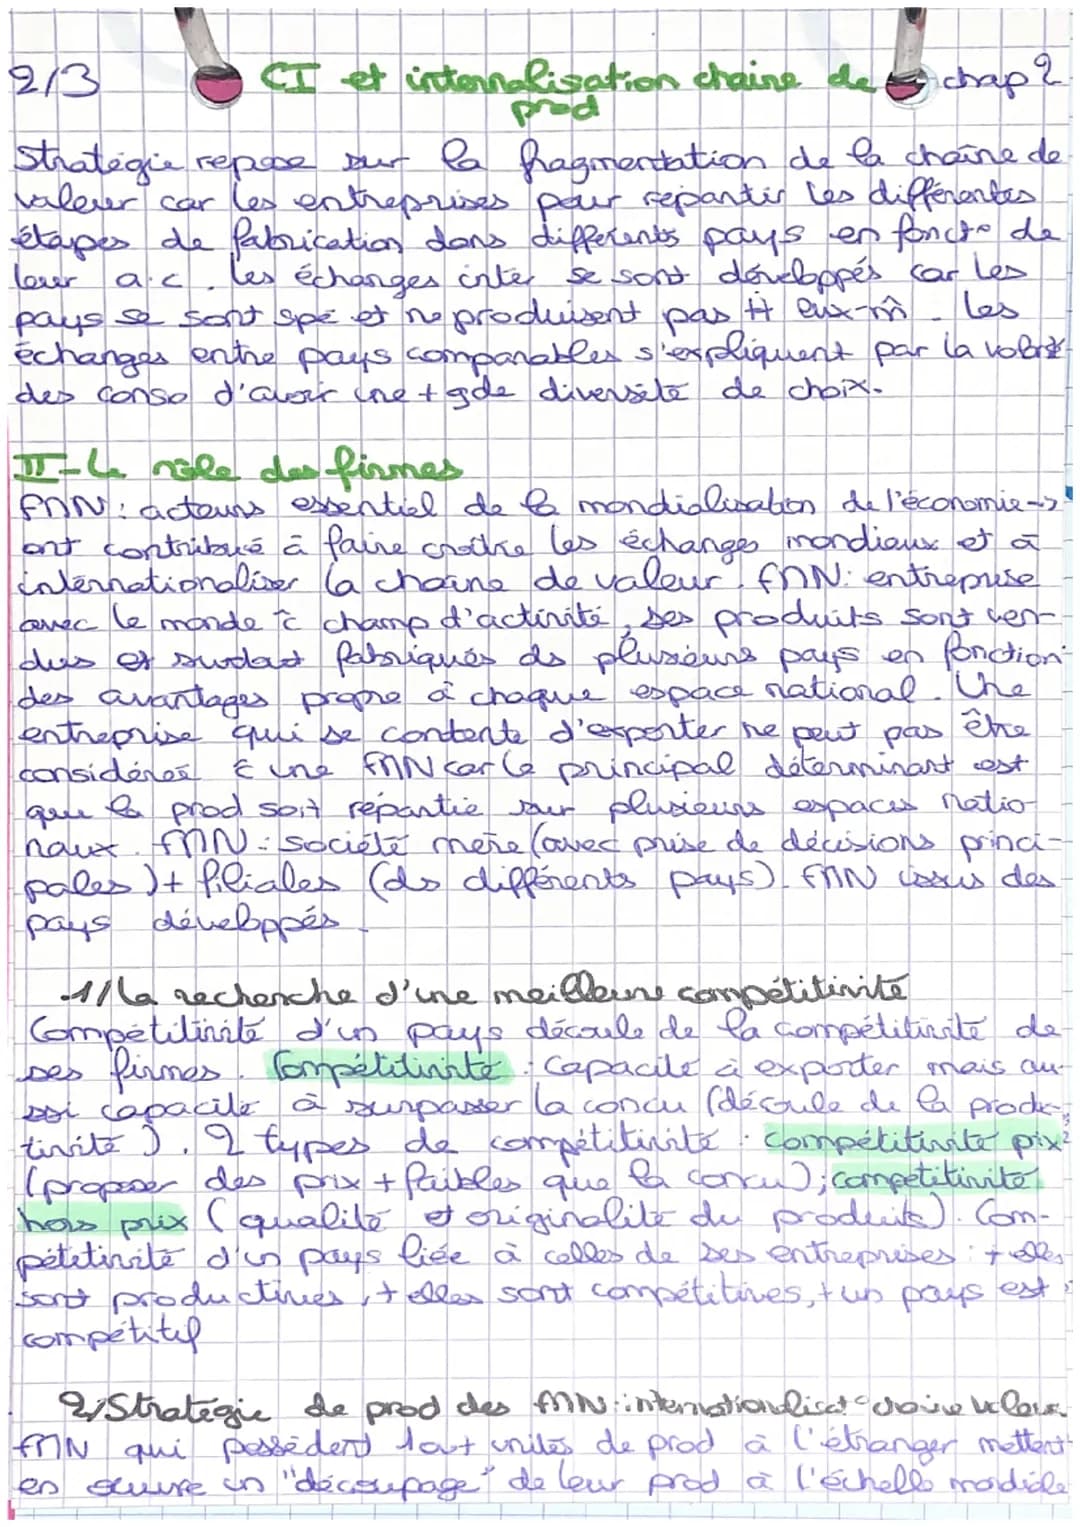 2/3 CI et internalisation chaine de chap 2
prod
Stratégie repose sur la fragmentation de la chaîne de
valeur car les entreprises peur répartir les différentes
étapes de fabrication dans différents pays en fonct° de
leur a.c. les échanges inter se sont développés car les
pays se sont spé et ne produisent pas tt eux-m̂. les
échanges entre pays comparables s'expliquent par la volonté
des conso d'avoir une + gde diversité de choix.
II - Le rôle des firmes
FMN : acteurs essentiel de la mondialisation de l'économie ->
ont contribué à faire croître les échanges mondiaux et à
internationaliser la chaîne de valeur. FMN : entreprise
avec le monde c̄ champ d'activité, ses produits sont ven-
dus et surtout fabriqués ds plusieurs pays en fonction
des avantages propre à chaque espace national. Une
entreprise qui se contente d'exporter ne peut pas être
considérée c̄ une FMN car le principal déterminant est
que la prod soit répartie sur plusieurs espaces natio-
naux. FMN : société mère (avec prise de décisions princi-
pales) + filiales (ds différents pays). FMN issus des
pays développés.
1/ La recherche d'une meilleure compétitivité
Compétitivité d'un pays découle de la compétitivité de
ses firmes. Compétitivité : capacité à exporter mais au-
ssi capacité à surpasser la concu (découle de la produc-
tivité). 2 types de compétitivité : compétitivité prix
(proposer des prix + faibles que la concu) ; compétitivité
hors prix (qualité et originalité du produits). Com-
pétetivité d'un pays liée à celles de ses entreprises : + elles
sont productives, + elles sont compétitives, + un pays est
compétitif
2/ Stratégie de prod des FMN : internationalisat° chaine valeur
FMN qui possèdent 1 ou + unités de prod à l'étranger mettent
en œuvre un "découpage" de leur prod à l'échelle mondiale